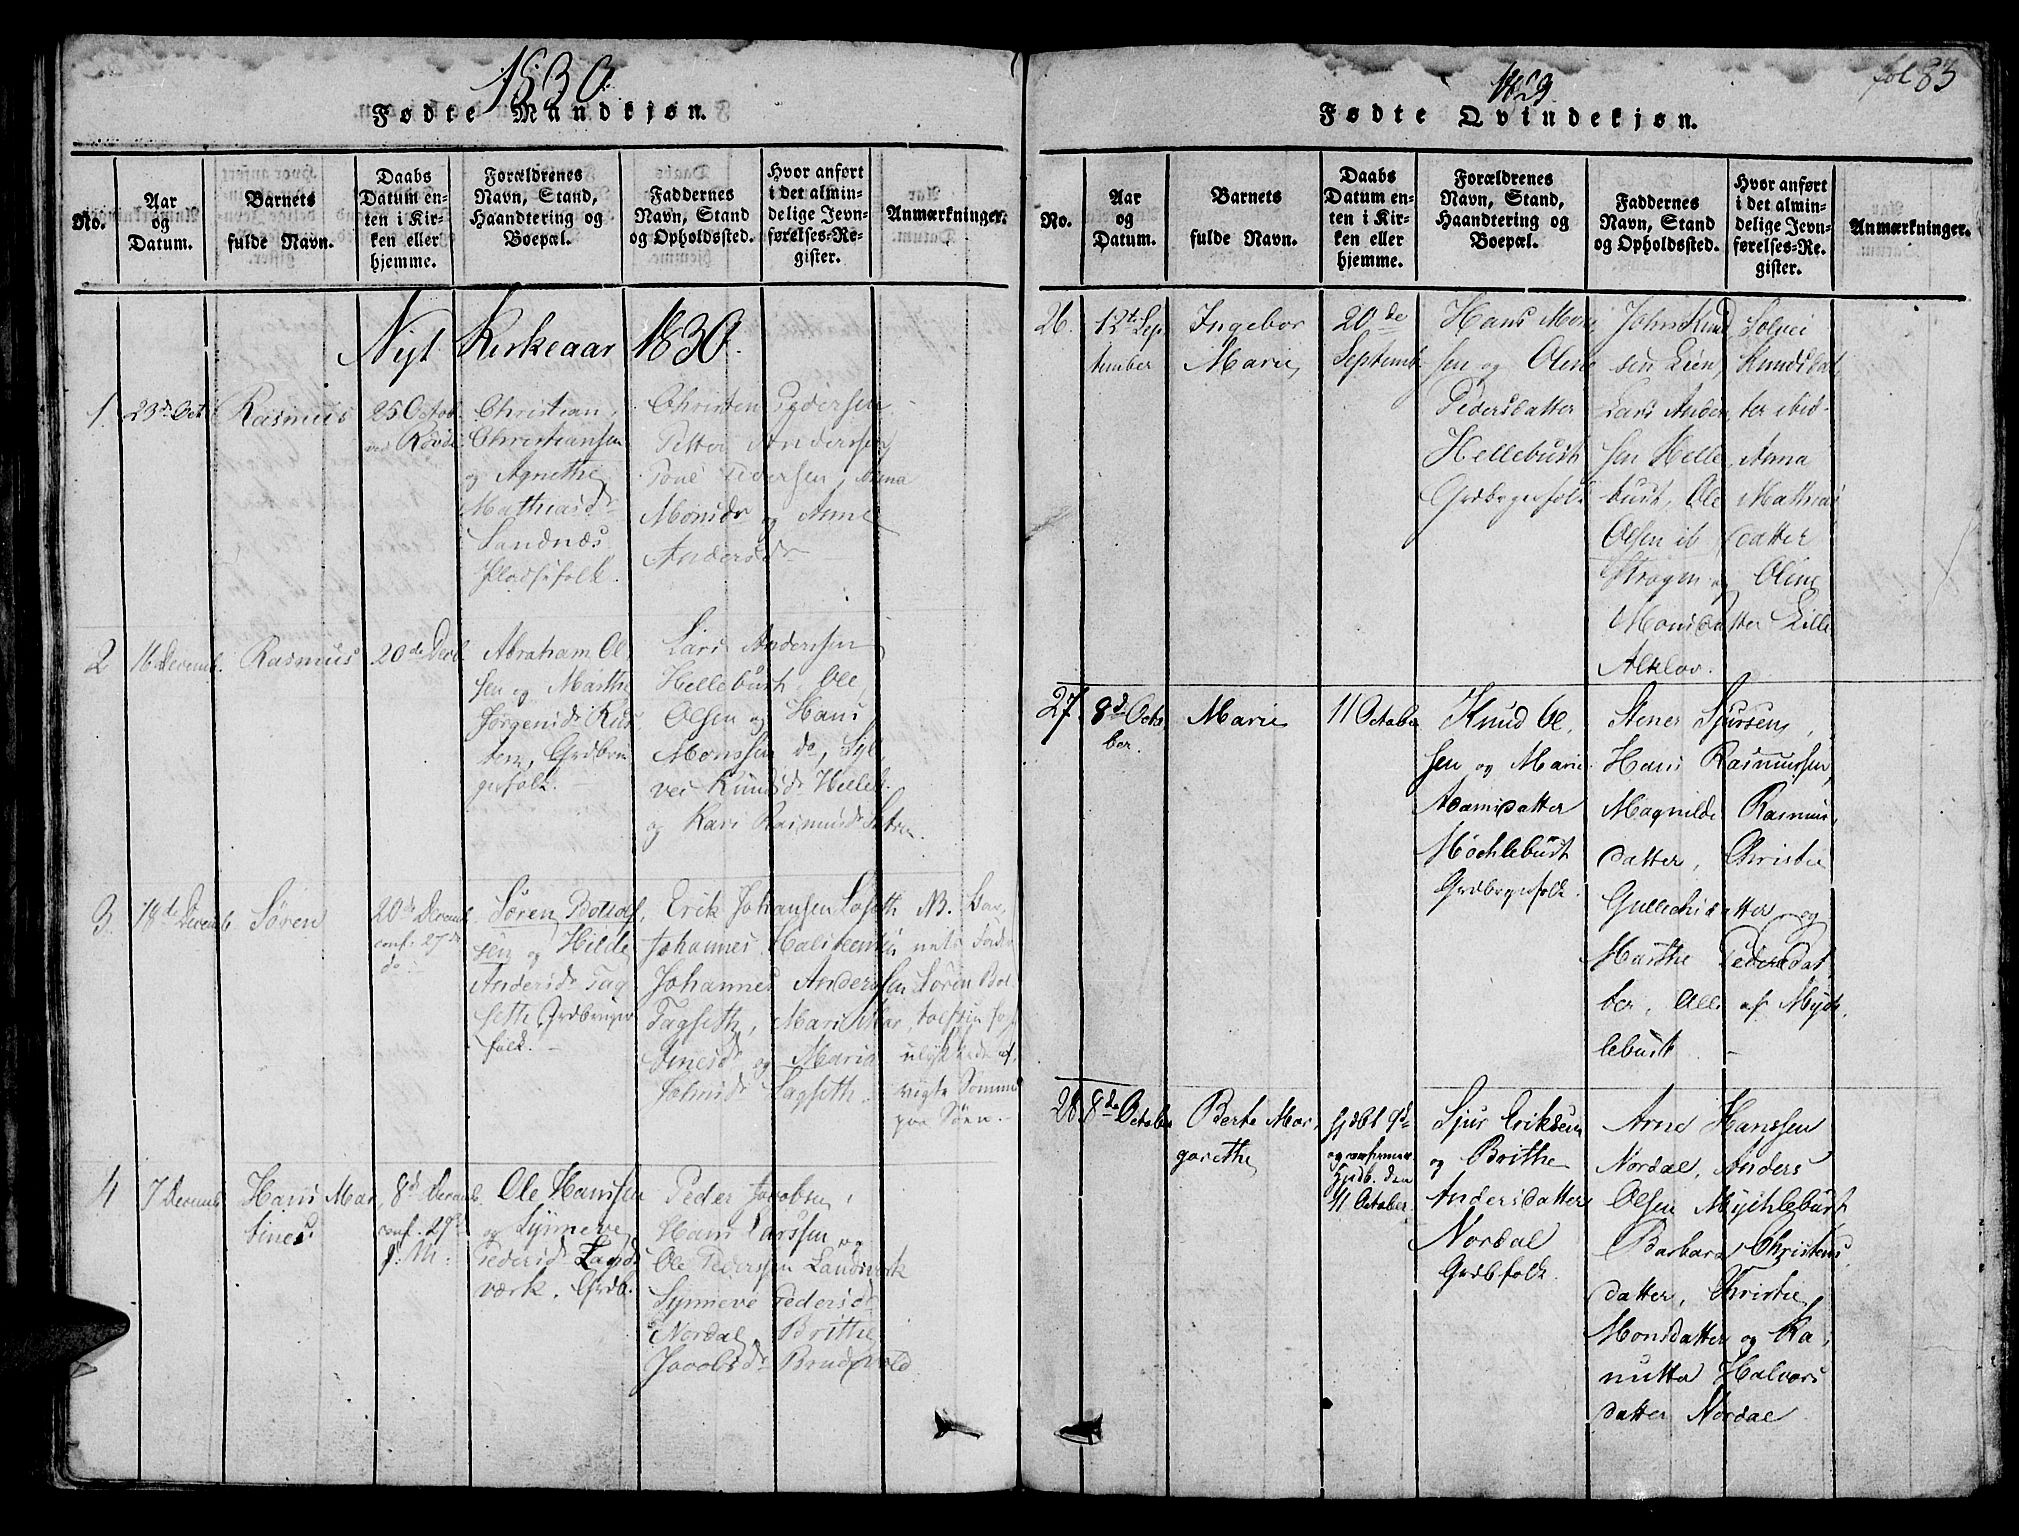 1830
Fødte Mandkjøn.
No.
Aar
og
Datum.
Barnets
fulde Navn.
Daabs
Datum en-
ten i Kir-
ken eller
hjemme.
Forældrenes
Navn, Stand,
Haandtering og
Boepæl.
Faddernes
Navn, Stand
og Opholdssted.
Hvor anført
i det almin-
delige Jevn-
førelses-Re-
gister.
Anmærkninger.
Nyt Kirkeaar 1830.
1.
23de Oct
Rasmus
25 Octob
ved Rovde
Christian
Christiansen
og Agnethe
Mathiasdr
Sandnæs
Pladsfolk.
Christen Pedersen
Petter Andersen
Poul Pedersen, Anna
Monsdr og Anne
Andersdr
2
16 Decemb.
Rasmus
20de Decb.
Abraham Ol
sen og Marthe
Jørgensdr
Grdbru
gerfolk.
Lars Anderssen
Hellebust, Ole
Olsen og Hans
Monssen do, Syl
vei Knudsdr Helleb.
og Kari Rasmusdr
3.
18de Decemb
Søren
20de Decemb
conf. 27de
do.
Søren Bottolf
sen og Hilde
Andersdr Tag
seth Grdbruger
folk.
Erik Johansen Løseth
Johannes Halsteensen
Johannes Anderssen
Tagseth, Mari Mar
tinesdr og Maria
Johnsdr Tagseth.
NB. Bar
nets Fader
Søren Bot
tolfsen for
ulykkedes af
vigte Sommer
paa Søen.
4
7 Decemb
Hans Mar
tines
8de Decemb.
conf. 27de
s. M.
Ole Hanssen
og Synneve
Pedersdr Lands
værk. Grdb.
Peder Jacobsen,
Hans Larssen og
Ole Pederssen Landsverk
Synneve Pedersdr
Nordal, Brithe
Jacobsdr Brudevold
1829
fol 83
Fødte Qvindekjøn.
No.
Aar
og
Datum.
Barnets
fulde Navn.
Daabs
Datum en-
ten i Kir-
ken eller
hjemme.
Forældrenes
Navn, Stand,
Haandtering og
Boepæl.
Faddernes
Navn, Stand
og Opholdssted.
Hvor anført
i det almin-
delige Jevn-
førelses-Re-
gister.
Anmærkninger.
26.
12te Sep
tember
Ingebor
Marie
20de
Septemb.
Hans Mon
sen og Oline
Pedersdatter
Hellebust
Grdbrgerfolk
John Knud
sen Lien, Solvei
Knudsdat
ter ibid.
Lars Ander
sen Helle
bust, Ole
Olsen ib
Anna
Mathias
datter
og Oline
Monsdatter Lille
27.
8de Octo
ber.
Marie
11 October
Knud Ol
sen og Marie
Adamsdatter
Møchlebust
Grdbrgerfolk.
Stener Sjursen,
Hans Rasmussen,
Magnilde Rasmus
datter, Christie
Gullachsdatter og
Marthe Pedersdat
ter. Alle af Mych
lebust.
28
8de October
Berte Mar
garethe
hjdbt 9de
og confirmer.
Hjdb. den
11 October.
Sjur Eriksen
og Brithe
Andersdatter
Nordal
Grdbfolk.
Arne Hanssen
Nordal, Anders
Olsen Mychlebust
Barbara Christens
datter, Christie
Monsdatter og Ra
nutta Halvors
datter Nordal